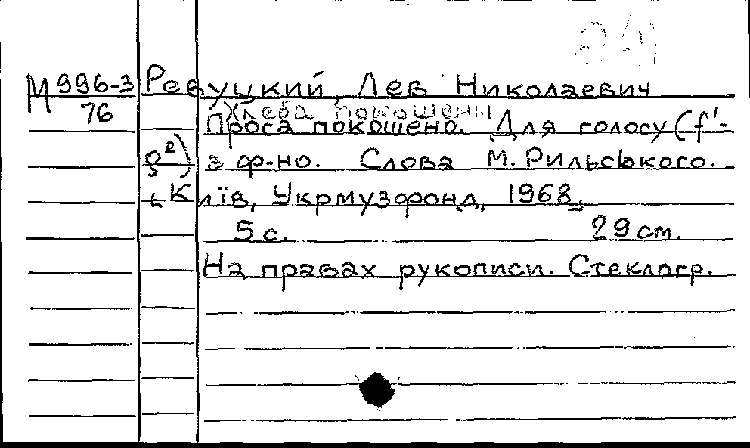 М 996-3 Ревуцкий, Лев Николаевич
76 Хлеба покошены
Проса покошено. Для голосу (f'-
g²) з ф-но. Слова М. Рильського.
Київ, Укрмузфонд, 1968.
5 с. 29 см.
На правах рукописи. Стеклогр.